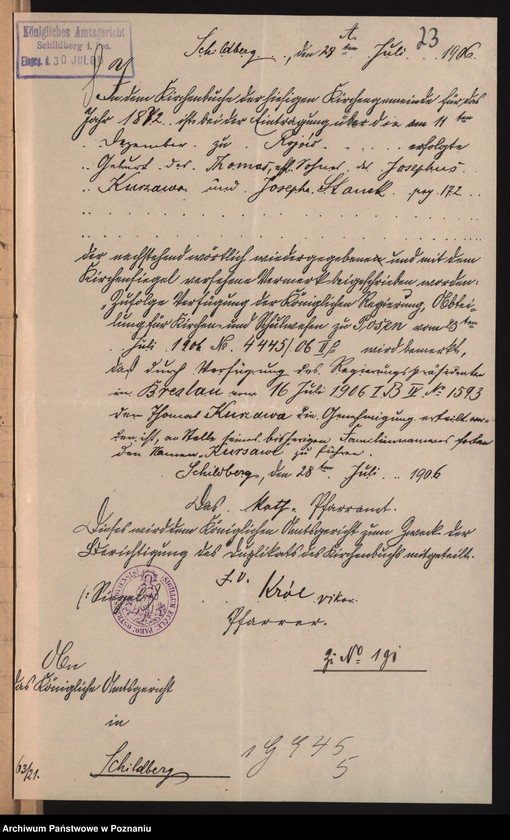 Königliches Amtsgericht
Schildberg i. Pos.
Eingeg. d. 30 JUL 06
A.
23
Schildberg, den 29ten Juli 1906.
In dem Kirchenbuche der hiesigen Kirchengemeinde für das
Jahr 1872 ist bei der Eintragung über die am 11ten
Dezember zu Rojów erfolgte
Geburt des Thomas, ehl. Sohnes des Josephus
Kurzawa und Josepha Stanek pag. 172
der nachstehend wörtlich wiedergegebene und mit dem
Kirchensiegel versehene Vermerk beigeschrieben worden:
Zufolge Verfügung der Königlichen Regierung, Abtei-
lung für Kirchen- und Schulwesen zu Posen vom 23ten
Juli 1906 No. 4445/06 II wird bemerkt,
daß durch Verfügung des Regierungspräsidenten
in Breslau vom 16 Juli 1906 I B IV No 1593
dem Thomas Kurzawa die Genehmigung erteilt wor-
den ist, an Stelle seines bisherigen Familiennamens fortan
den Namen Kursawe zu führen.
Schildberg, den 28ten Juli 1906
Das Kath. Pfarramt.
Dieses wird dem Königlichen Amtsgericht zum Zweck der
Berichtigung des Duplikats des Kirchenbuchs mitgeteilt.
(: Siegel :)
J. V.
Król Vikar
Pfarrer.
An
das Königliche Amtsgericht
in
Schildberg
63/21.
Archiwum Państwowe w Poznaniu